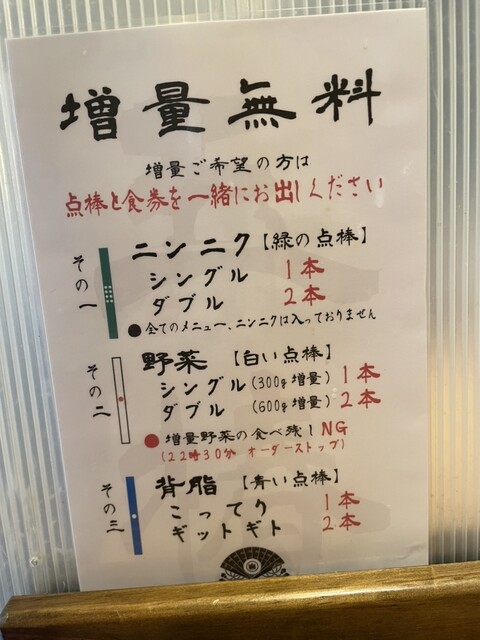 増量無料
増量ご希望の方は
点棒と食券を一緒にお出しください
その一
ニンニク【緑の点棒】
シングル 1本
ダブル 2本
●全てのメニュー、ニンニクは入っておりません
その二
野菜【白い点棒】
シングル(300g増量)1本
ダブル(600g増量)2本
●増量野菜の食べ残しNG
(22時30分 オーダーストップ)
その三
背脂【青い点棒】
こってり 1本
ギットギト 2本